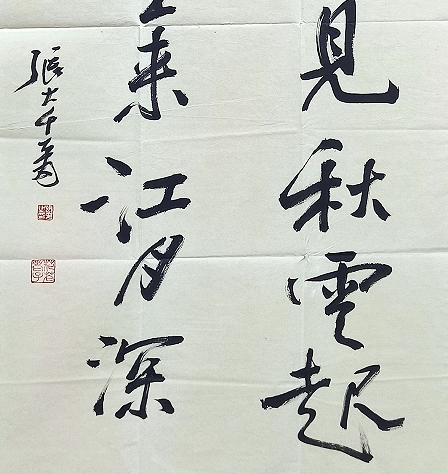 見秋雲起
來江月深
張大千爰